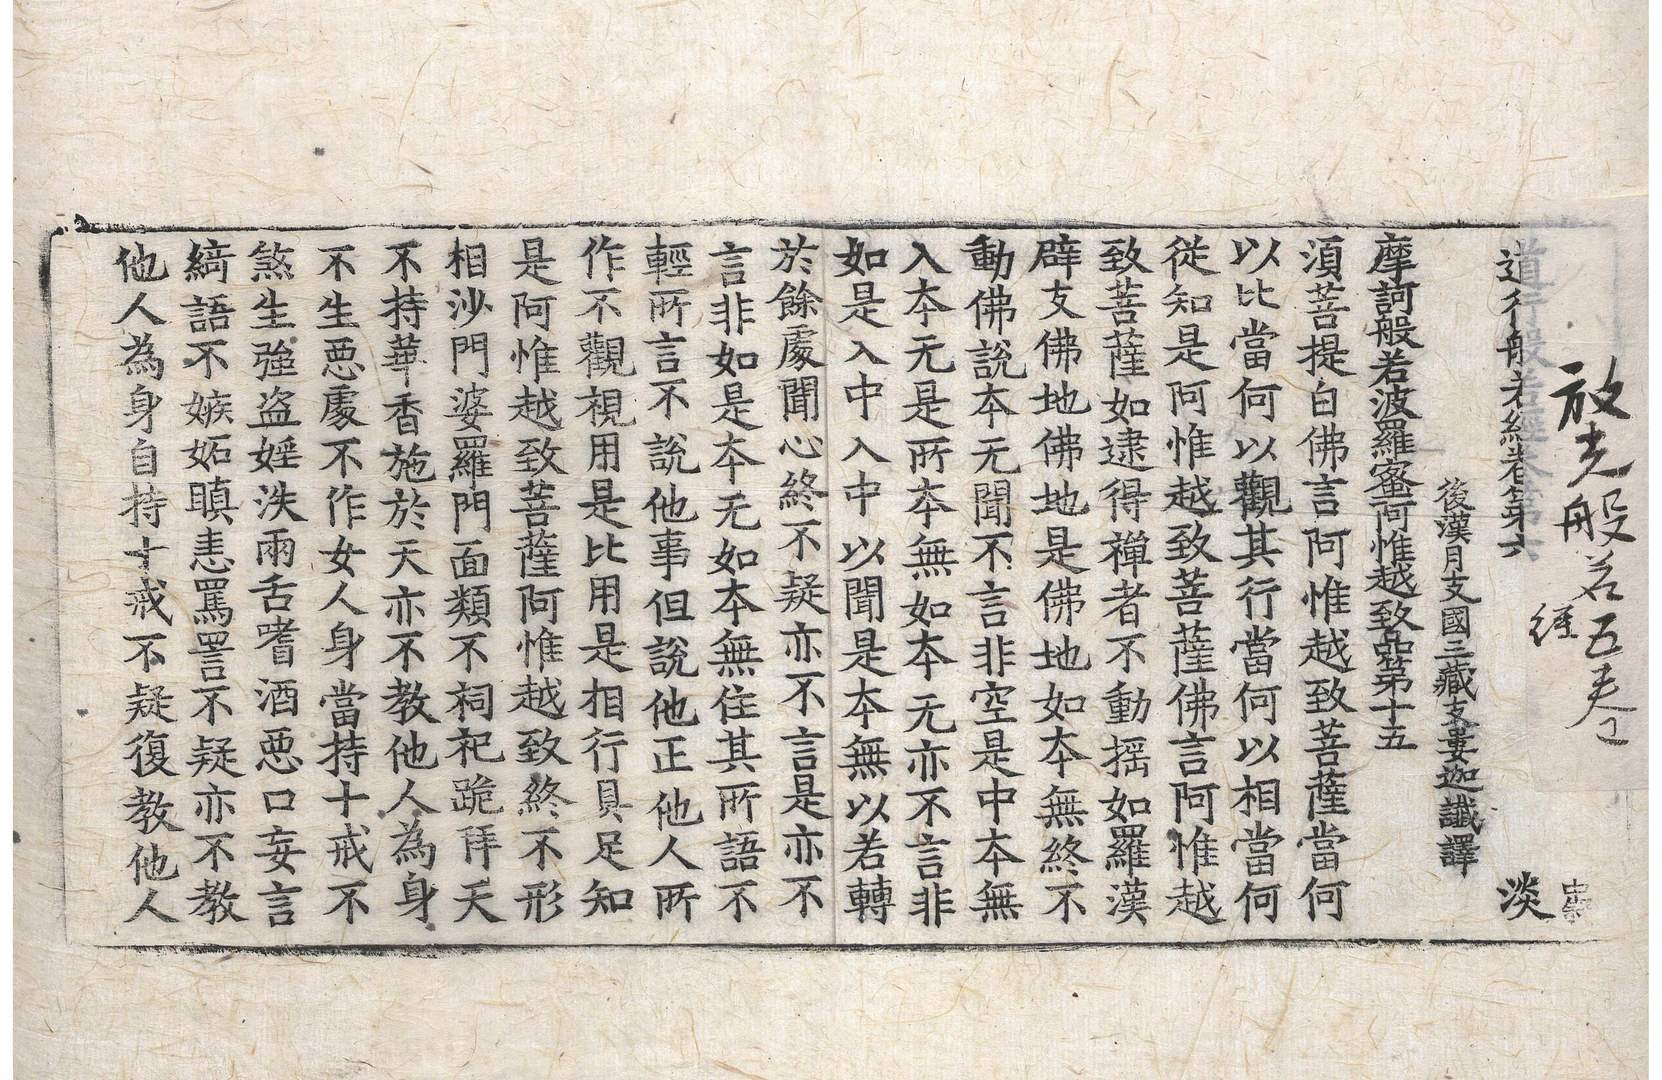 放光般若五卷
經
道行般若經卷第六 淡
後漢月支國三藏支婁迦讖譯
摩訶般若波羅蜜阿惟越致品第十五
湏菩提白佛言阿惟越致菩薩當何
以比當何以觀其行當何以相當何
從知是阿惟越致菩薩佛言阿惟越
致菩薩如逮得禪者不動摇如羅漢
辟支佛地佛地是佛地如夲無終不
動佛說夲无聞不言非空是中夲無
入夲无是所夲無如夲无亦不言非
如是入中入中以聞是夲無以若轉
於餘處聞心終不疑亦不言是亦不
言非如是夲无如夲無住其所語不
輕所言不說他事但說他正他人所
作不觀視用是比用是相行具足知
是阿惟越致菩薩阿惟越致終不形
相沙門婆羅門面類不祠祀跪拜天
不持華香施於天亦不教他人為身
不生惡處不作女人身當持十戒不
煞生強盗婬泆兩舌嗜酒惡口妄言
綺語不嫉妬瞋恚罵詈不疑亦不教
他人為身自持十戒不疑復教他人